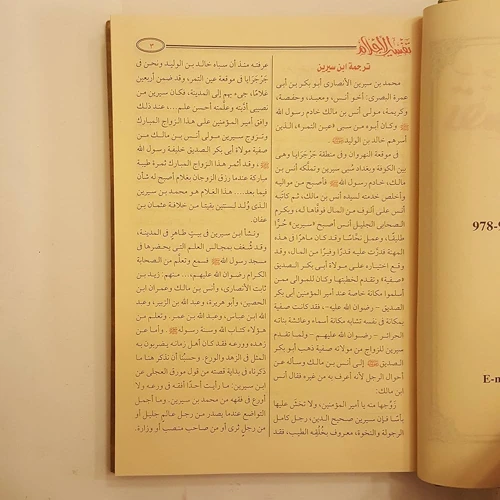 تفسير الأحلام
٣
ترجمة ابن سيرين
محمد بن سيرين الأنصارى أبو بكر بن أبى
عمرة البصرى: أخو أنس، ومعبد، وحفصة،
وكريمة، مولى أنس بن مالك خادم رسول الله
ﷺ وكان أبوه من سبى «عين التمر»، الذين
أسرهم خالد بن الوليد
فى موقعة النهروان وفى منطقة جرجرايا وهى
بين الكوفة وبغداد سُبى سيرين وتملكه أنس بن
مالك، خادم رسول الله ﷺ فأصبح من مواليه
وأخلص خدمته لسيده أنس بن مالك، ثم كاتبه
أنس على ألوف من المال فوفّاها له، وبكرم
الصحابى الجليل أنس أصبح «سيرين» حُرًّا
طليقًا، وعمل نحّاسًا وقد كان ماهرًا فى هذه
المهنة فدرّت عليه قدرًا وفرًا من المال، وقد
وقع اختياره على مولاة أبى بكر الصديق
«صفية» وتقدم لخطبتها وكان للموالى ممن
أسلموا مكانة خاصة عند أمير المؤمنين أبى بكر
الصديق - رضوان الله عليه-، فقد كانت صفية
بمكانة فى نفسه تشابه مكانة أسماء وعائشة بناته
الحرائر - رضوان الله عليهم - ولمّا تقدم
سيرين للزواج من مولاته صفية ذهب أبو بكر
الصديق إلى أنس بن مالك وسأله عن
أحوال الرجل لأنه أعرف به من غيره فقال أنس
ابن مالك:
زوّجها منه يا أمير المؤمنين، ولا تخش عليها
بأسًا فإن سيرين صحيح الدين، رجل كامل
الرجولة والنخوة، معروف بخُلقه الطيب، فقد
عرفته منذ أن سباه خالد بن الوليد ونحن فى
جرجرايا فى موقعة عين التمر، وقد ضمن أربعين
غلامًا، جىء بهم إلى المدينة، فكان سيرين من
نصيبى أدّبته وعلّمته أحسن علم..... عند ذلك
وافق أمير المؤمنين على هذا الزواج المبارك
وتزوج سيرين مولى أنس بن مالك من
صفية مولاة أبى بكر الصديق خليفة رسول الله
ﷺ، وقد أثمر هذا الزواج المبارك ثمرة طيبة
مباركة عندما رزق الزوجان بغلام أصبح له شأن
فيما بعد.... هذا الغلام هو محمد بن سيرين
الذى وُلد لسنتين بقيتا من خلافة عثمان بن
عفان.
ونشأ ابن سيرين فى بيت طاهر فى المدينة،
وقد شُغف بمجالس العلم التى يحضرها فى
مسجد رسول الله ﷺ فسمع وتعلّم من الصحابة
الكرام رضوان الله عليهم،... منهم: زيد بن
ثابت الأنصارى، وأنس بن مالك وعمران ابن
الحصين، وأبو هريرة، وعبد الله بن الزبير، وعبد
الله ابن عباس، وعبد الله بن عمر. وتعلم من
هؤلاء كتاب الله وسنة رسوله ﷺ. وأما عن
زهده وورعه فقد كان أهل زمانه يضربون به
المثل فى الزهد والورع. وحسبُنا أن نذكر هنا ما
ذكرناه فى بداية قصته من قول مورق العجلى عن
ابن سيرين: ما رأيت أحدًا أفقه فى ورعه ولا
أورع فى فقهه من محمد بن سيرين. وما أجمل
التواضع عندما يصدر من رجل عالم جليل أو
من رجل ثرى أو من صاحب منصب أو وزارة.
978-9
E-m